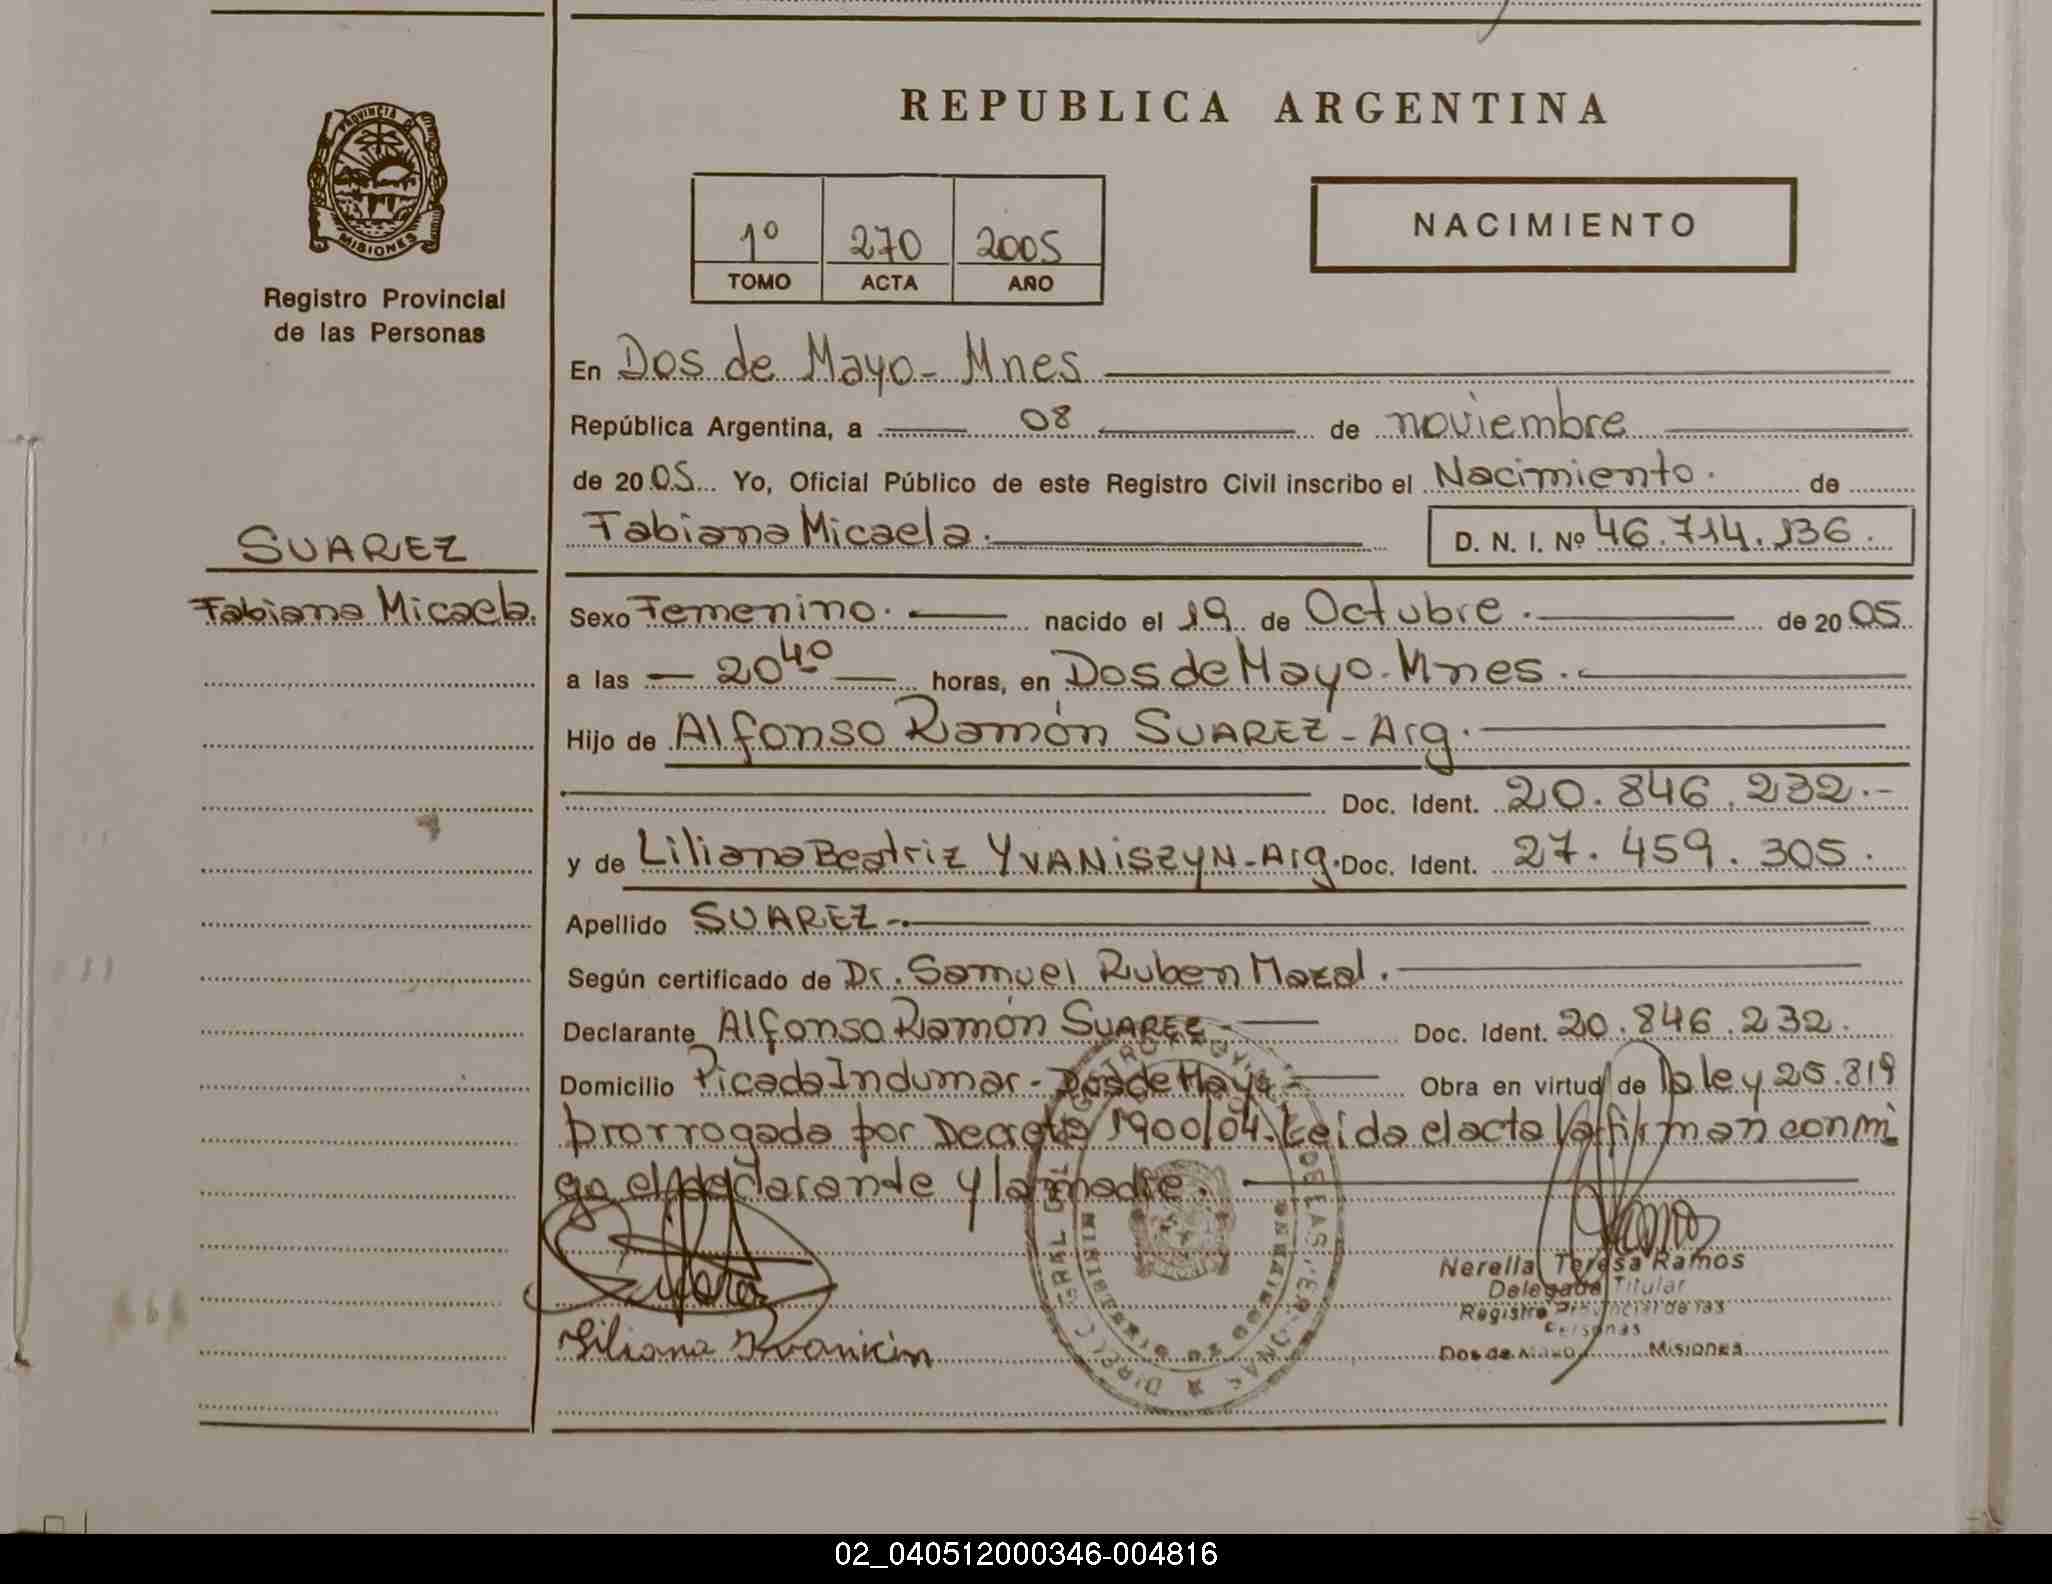 REPUBLICA ARGENTINA
PROVINCIA DE
MISIONES
Registro Provincial
de las Personas
1º 270 2005
TOMO ACTA AÑO
NACIMIENTO
En Dos de Mayo - Mnes
República Argentina, a 08 de noviembre
de 2005 Yo, Oficial Público de este Registro Civil inscribo el Nacimiento. de
Fabiana Micaela. D. N. I. Nº 46.714.136.
SUAREZ
Fabiana Micaela.
Sexo Femenino. nacido el 19 de Octubre. de 2005
a las — 20 40 — horas, en Dos de Mayo. Mnes.
Hijo de Alfonso Ramón SUAREZ - Arg.
Doc. Ident. 20.846.232.-
y de Liliana Beatriz YVANISZYN - Arg. Doc. Ident. 27.459.305.
Apellido SUAREZ -.
Según certificado de Dr. Samuel Ruben Mazal.
Declarante Alfonso Ramón SUAREZ - Doc. Ident. 20.846.232.
Domicilio Picada Indumar - Dos de Mayo - Obra en virtud de la ley 25.819
prorrogada por Decreto 1900/04. Leída el acta la firman conmi
go el declarante y la madre.
Nerella Teresa Ramos
Delegada Titular
Registro Provincial de las
Personas
Dos de Mayo Misiones
Liliana
02_040512000346-004816